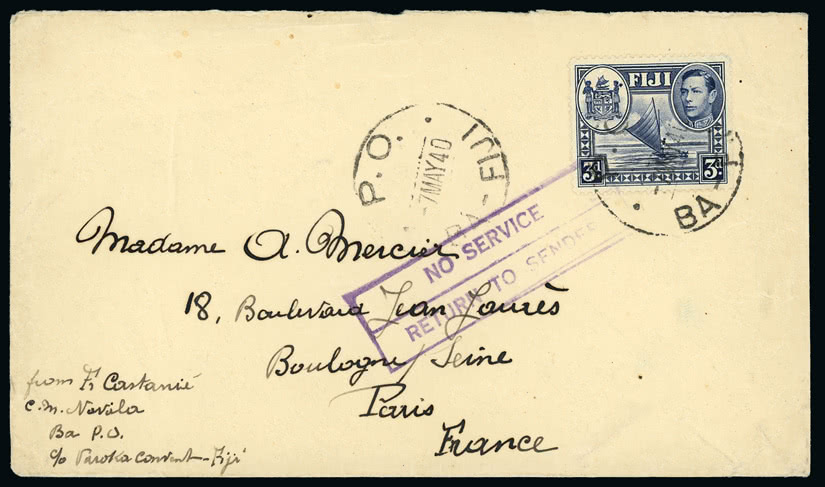 FIJI
3d 3d
P.O. BA-FIJI
-7MAY40
BA-
NO SERVICE
RETURN TO SENDER
Madame A. Mercier
18, Boulevard Jean Jaurès
Boulogne / Seine
Paris
France
from F. Castanié
C.M. Navala
Ba P.O.
c/o Varoka Convent - Fiji